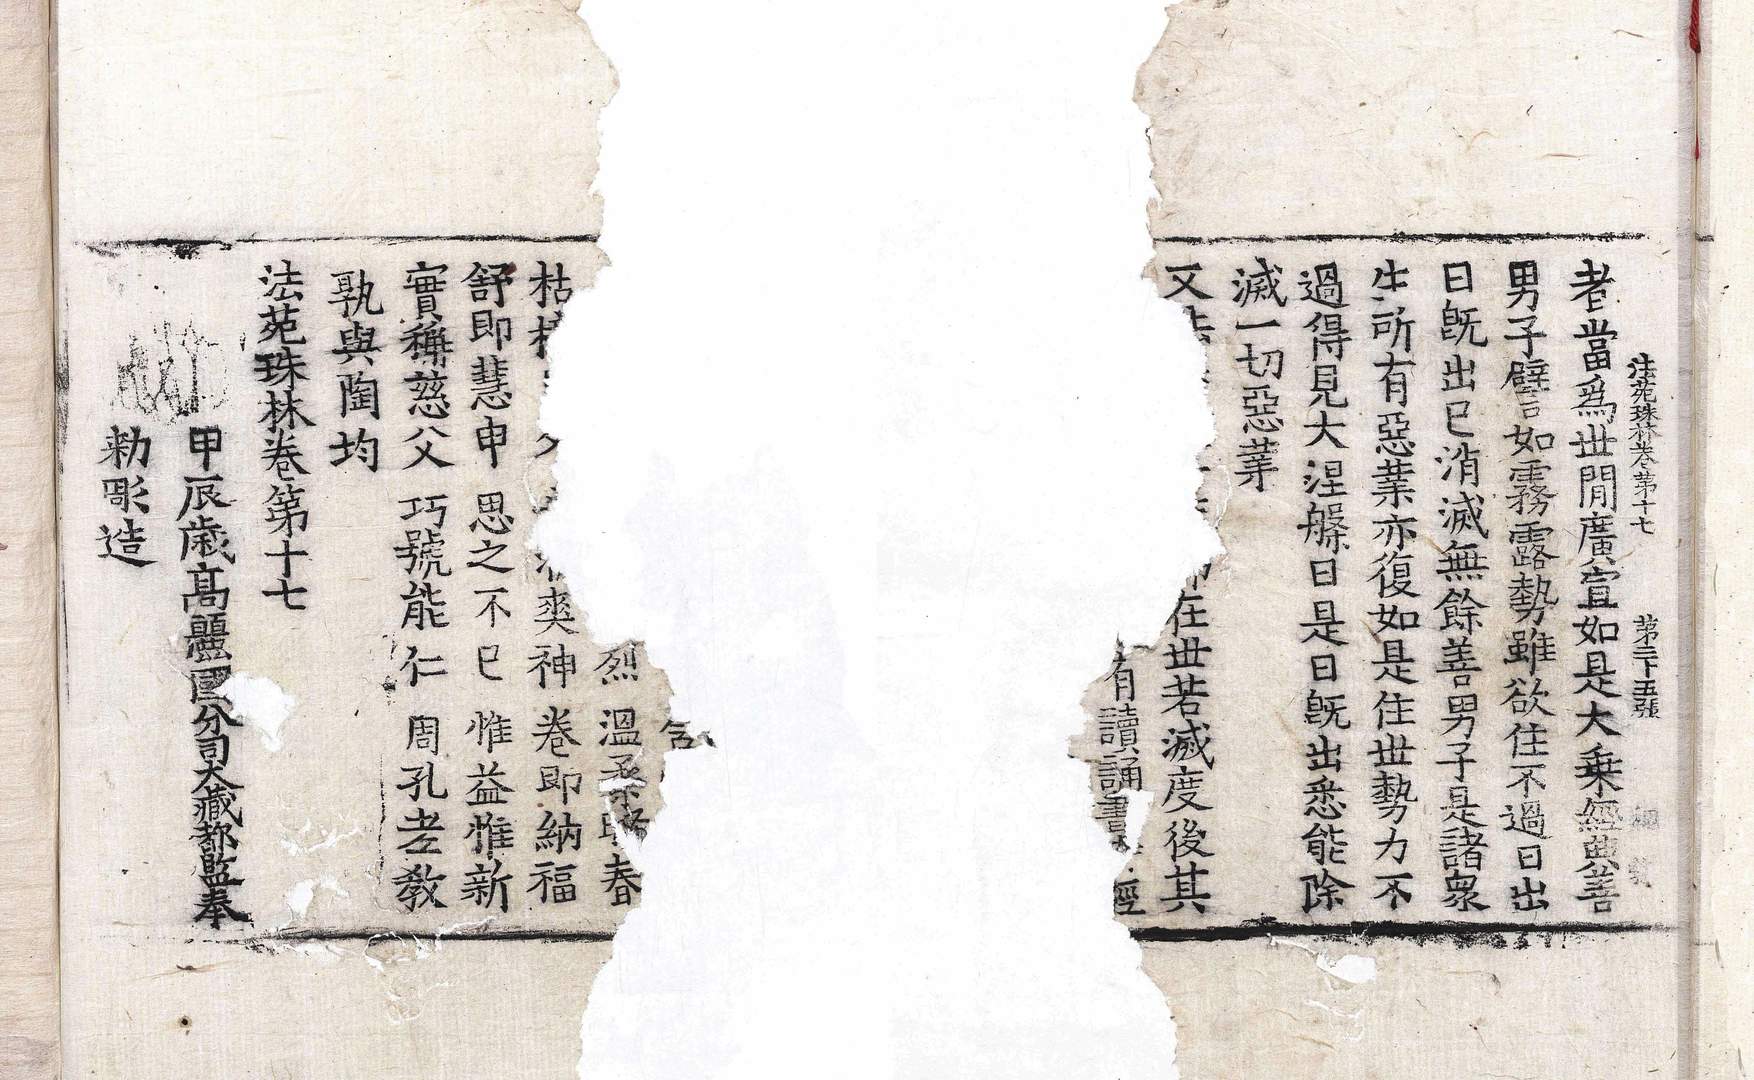 法苑珠林卷第十七 第二十五張
者當爲世間廣宣如是大乘經典善
男子譬如霧露勢雖欲住不過日出
日旣出已消滅無餘善男子是諸衆
生所有惡業亦復如是住世勢力不
過得見大涅槃日是日旣出悉能除
滅一切惡業
又 在世若滅度後其
有讀誦 經
含
烈 溫柔 春
枯 爽神 卷即納福
舒即慧申 思之不已 惟益惟新
實稱慈父 巧號能仁 周孔老敎
孰與陶均
法苑珠林卷第十七
甲辰歲高麗國分司大藏都監奉
勑彫造